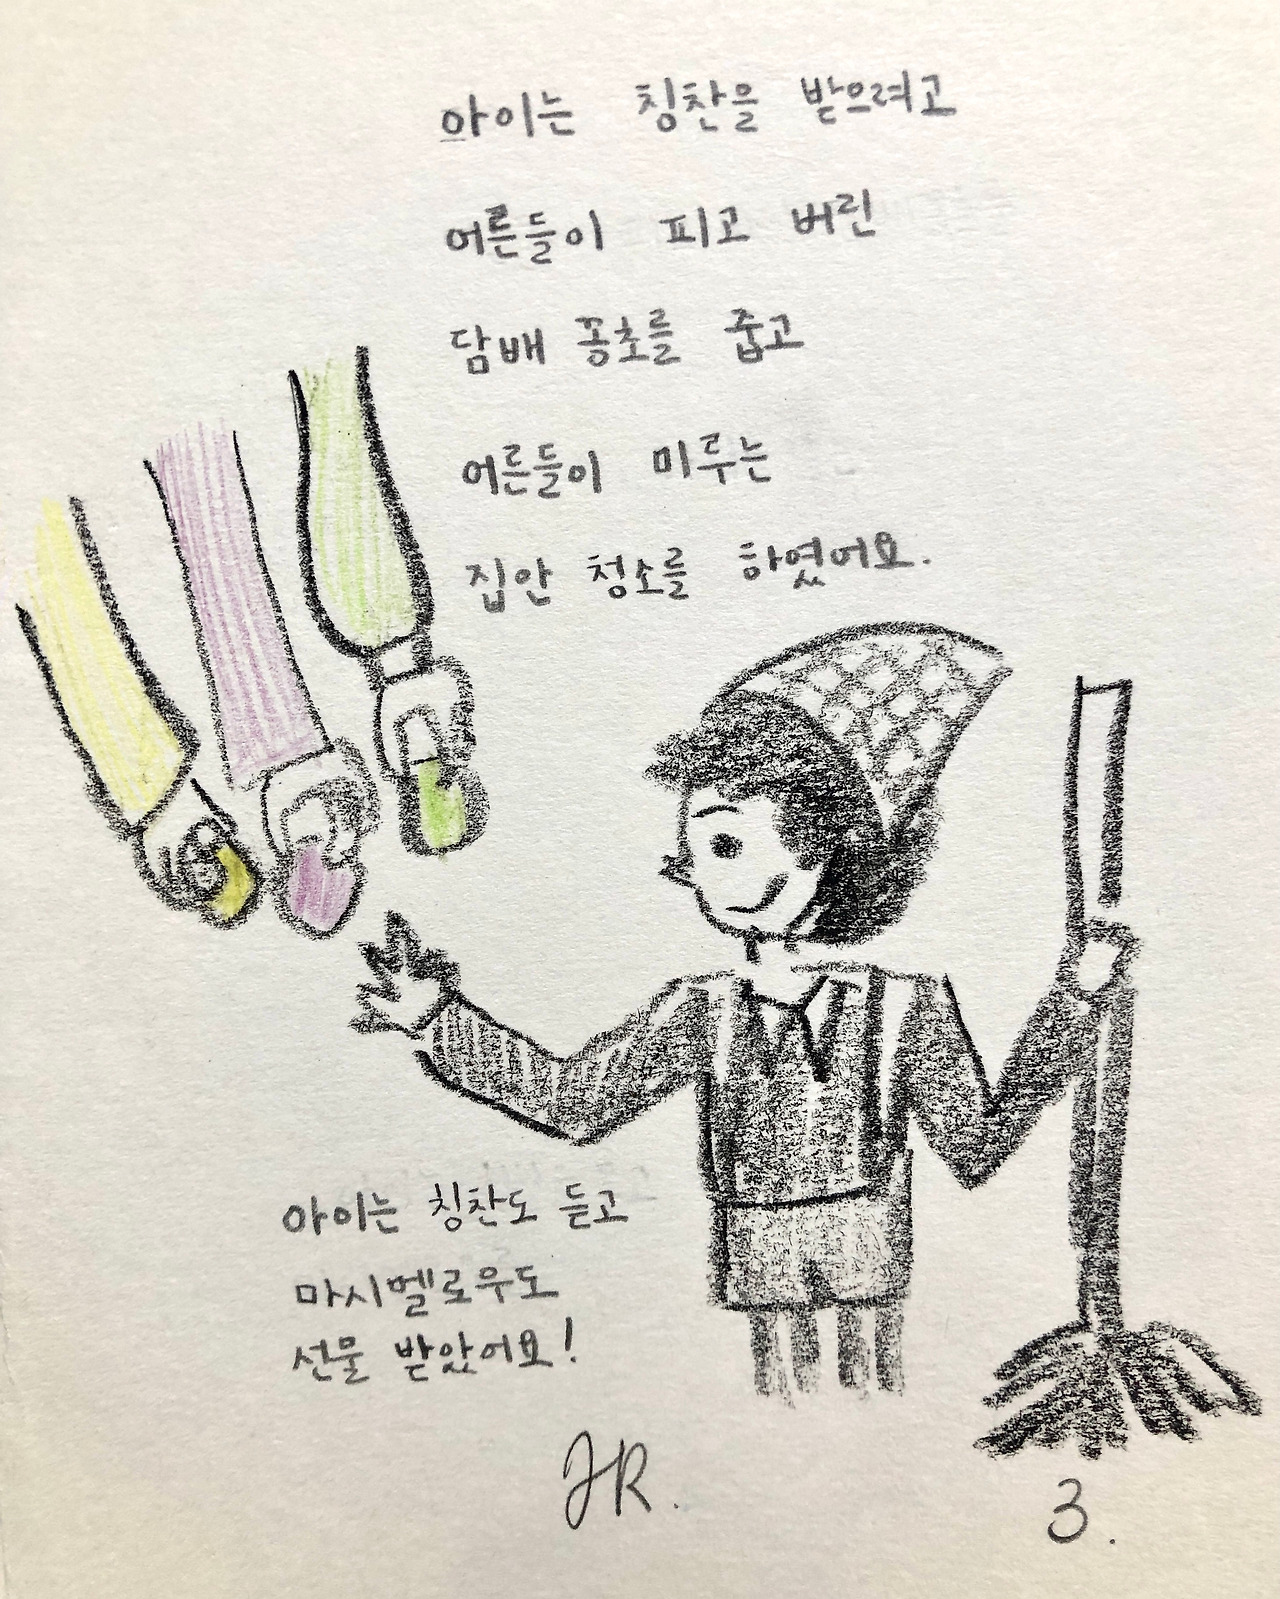 아이는 칭찬을 받으려고
어른들이 피고 버린
담배 꽁초를 줍고
어른들이 미루는
집안 청소를 하였어요.
아이는 칭찬도 듣고
마시멜로우도
선물 받았어요!
JR.
3.